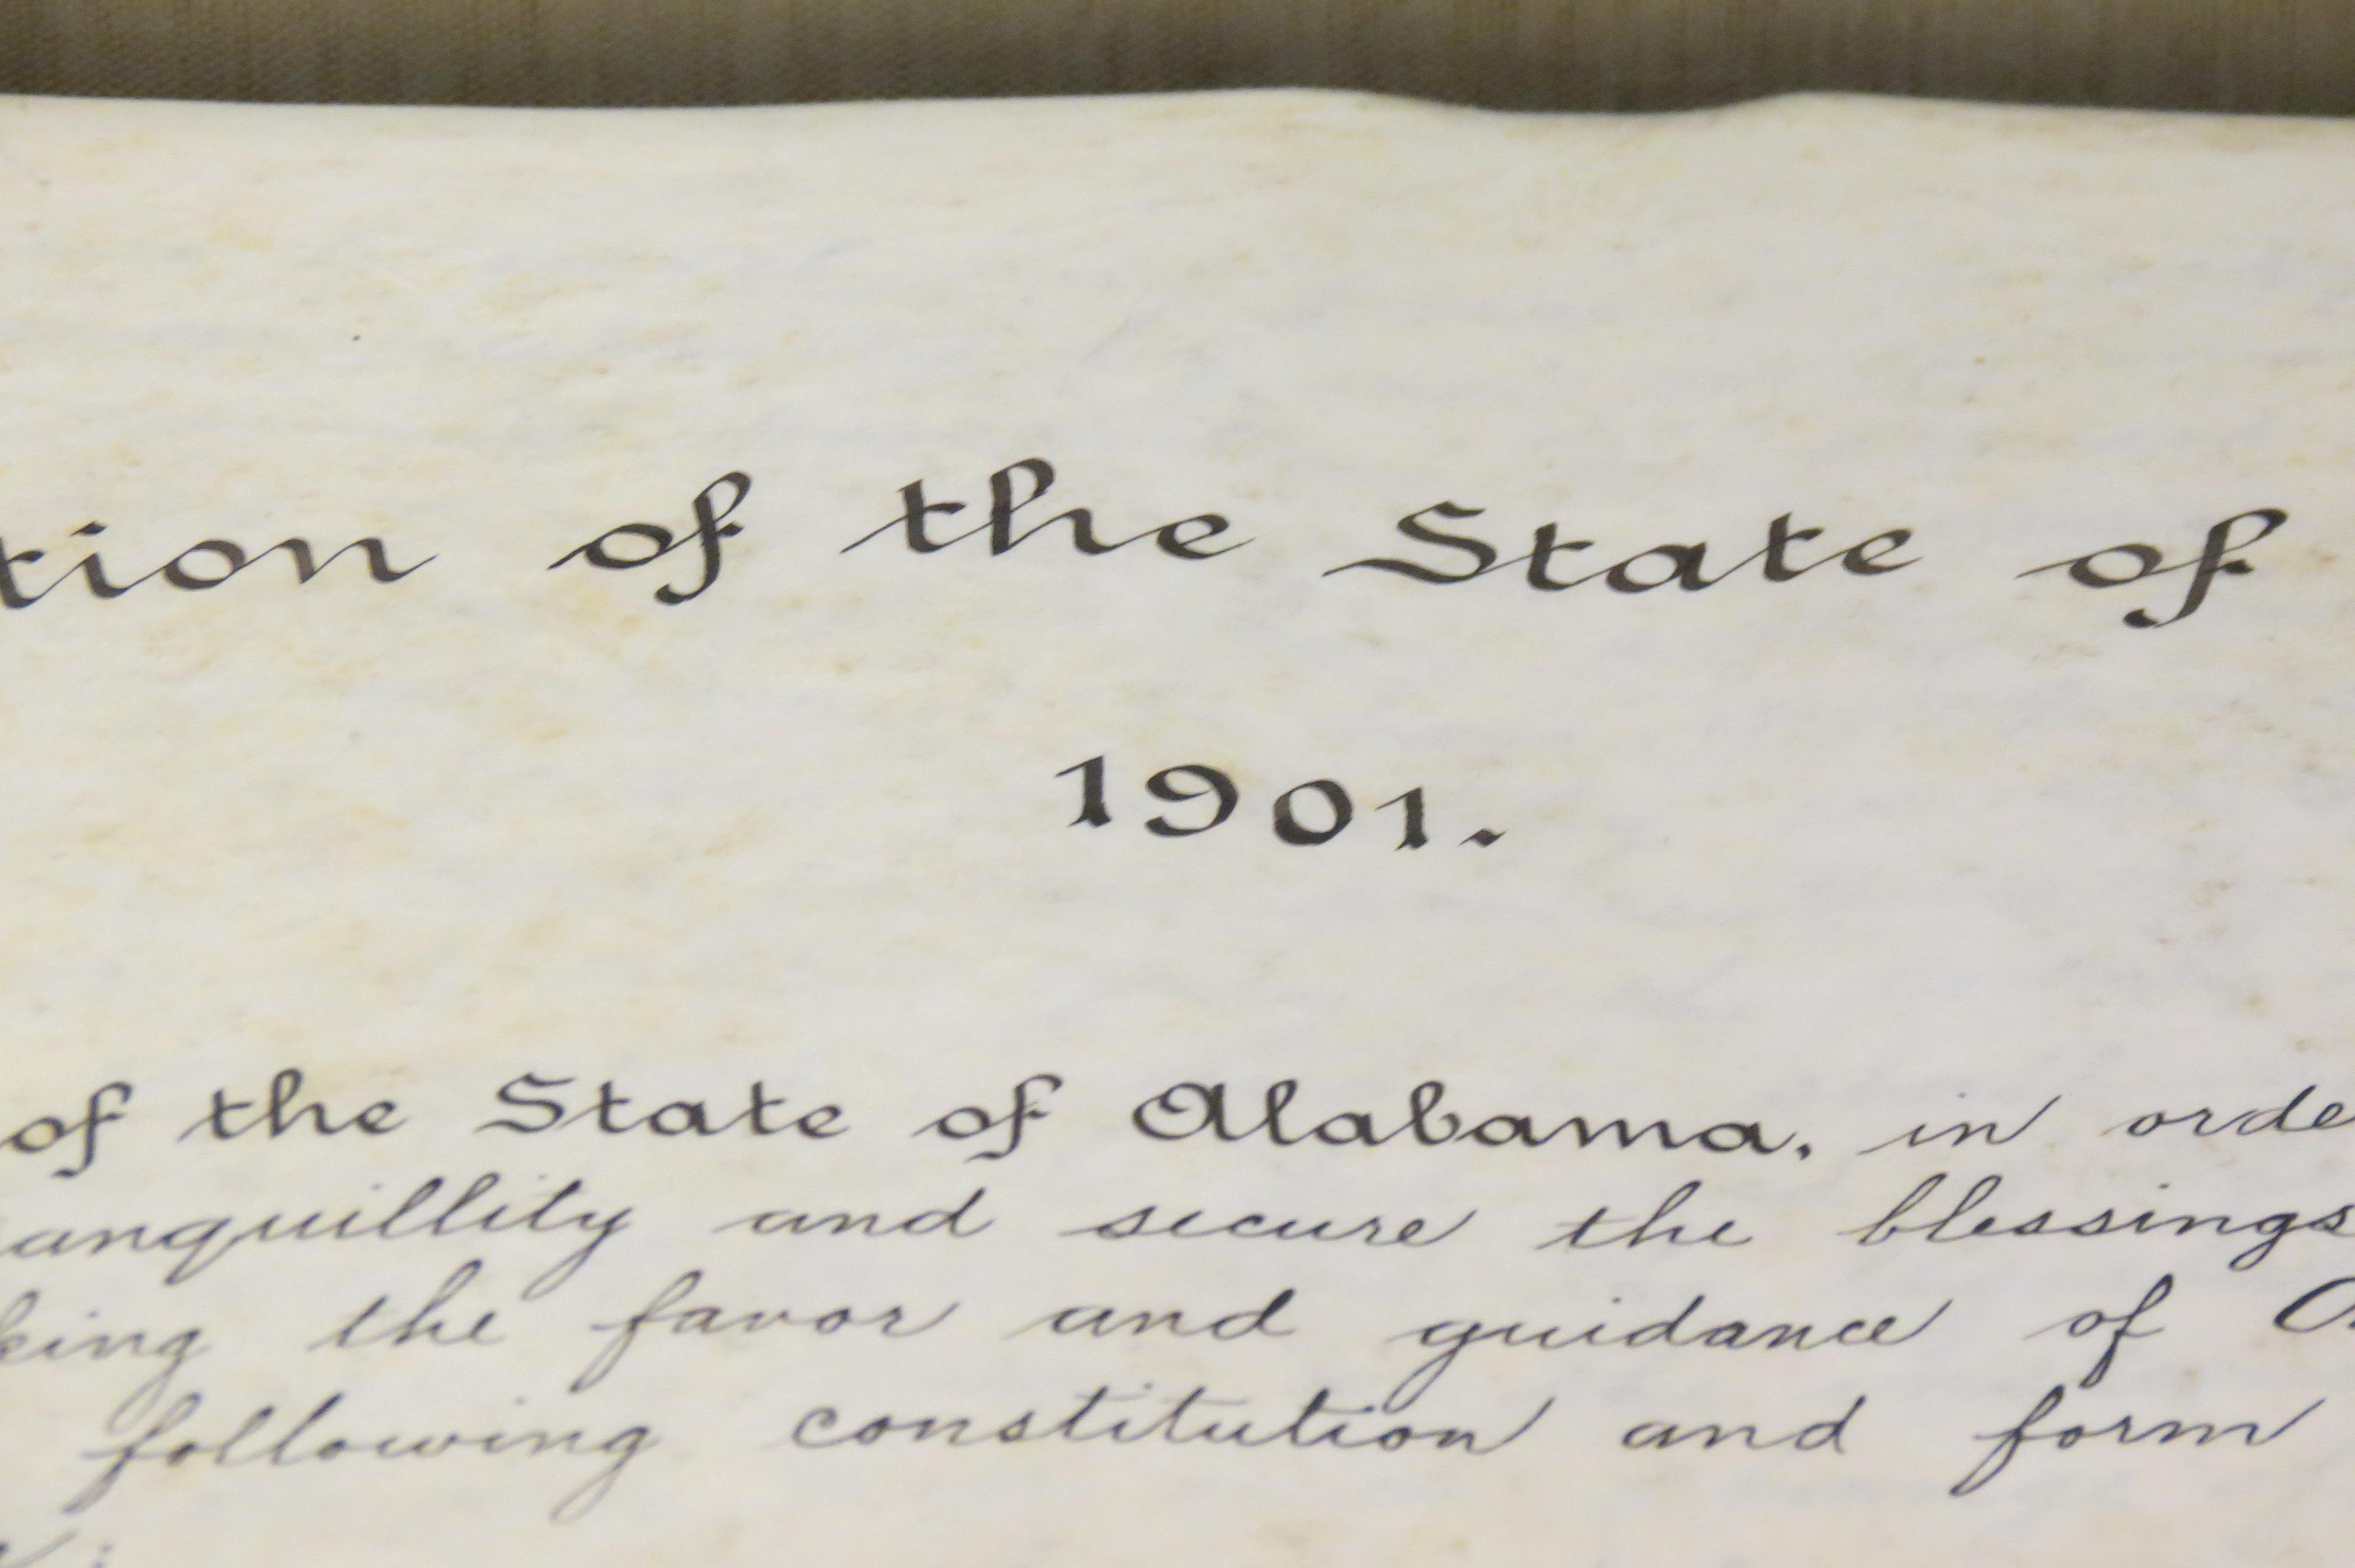 tion of the State of
1901.
of the State of Alabama, in orde
anquillity and secure the blessings
king the favor and guidance of A
following constitution and form